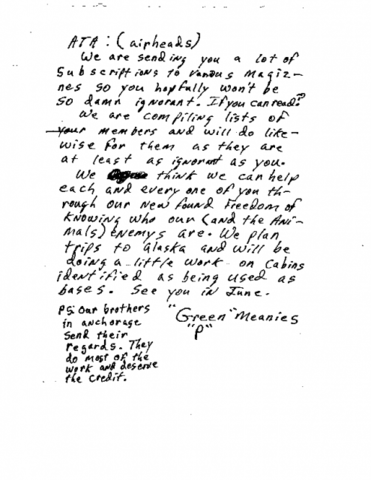 ATA: (airheads)
We are sending you a lot of
subscriptions to various magiz-
nes so you hopfully won't be
so damn ignorant. If you can read?
We are compiling lists of
your members and will do like-
wise for them as they are
at least as ignorant as you.
We think we can help
each and every one of you th-
rough our new found freedom of
knowing who our (and the Ani-
mals) Enemys are. We plan
trips to Alaska and will be
doing a little work on cabins
identified as being used as
bases. See you in June.
"Green" Meanies
"P"
PS: Our brothers
in anchorage
send their
regards. They
do most of the
work and deserve
the credit.